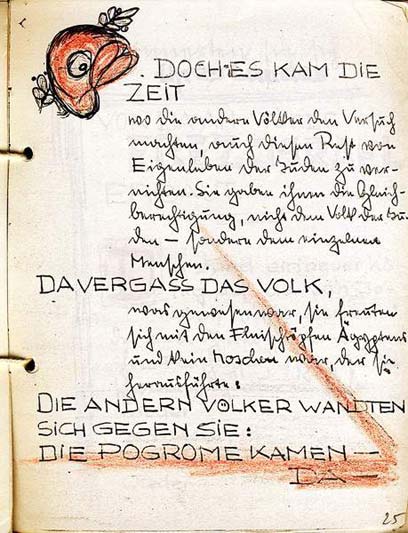 . DOCH ES KAM DIE
ZEIT
wo die andern Völker den Versuch
machten, auch diesen Rest von
Eigenleben der Juden zu ver-
nichten. Sie gaben ihnen die Gleich-
berechtigung, nicht dem Volk der Ju-
den — sondern dem einzelnen
Menschen.
DA VERGASS DAS VOLK,
was gewesen war, sie freuten
sich mit den Fleischtöpfen Ägyptens
und kein Moschee war, der sie
herausführte:
DIE ANDERN VÖLKER WANDTEN
SICH GEGEN SIE:
DIE POGROME KAMEN —
DA —
25